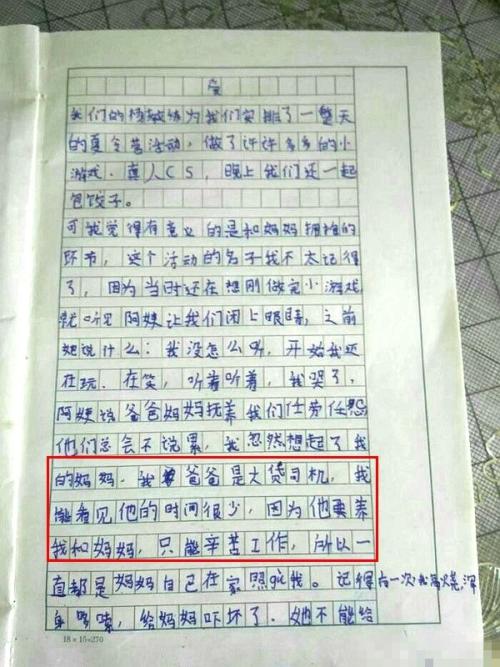 爱
我们的杨教练为我们安排了一整天
的夏令营活动，做了许许多多的小
游戏．真人CS，晚上我们还一起
包饺子。
可我觉得有意义的是和妈妈拥抱的
环节，这个活动的名子我不太记得
了，因为当时还在想刚做完小游戏
就听见阿姨让我们闭上眼睛，之前
她说什么：我没怎么听，开始我还
在玩．在笑，听着听着，我哭了，
阿姨说爸爸妈妈抚养我们任劳任怨
他们总会不说累，我忽然想起了我
的妈妈．我爸爸是大货司机，我
能看见他的时间很少，因为他要养
我和妈妈，只能辛苦工作，所以一
直都是妈妈自己在家照顾我。记得有一次，我高烧，浑
身哆嗦，给妈妈吓坏了．她不能给
18×15=270